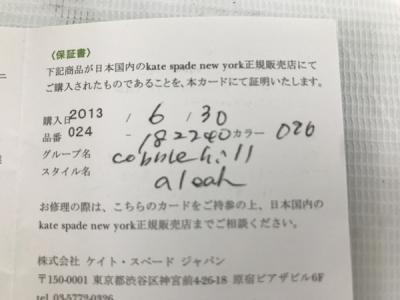 〈保証書〉
下記商品が日本国内のkate spade new york正規販売店にて
ご購入されたものであることを、本カードにて証明いたします。
購入日 2013 / 6 / 30
品番 024 - 182240 カラー 026
グループ名 cobble hill
スタイル名
お修理の際は、こちらのカードをご持参の上、日本国内の
kate spade new york正規販売店までご相談ください。
株式会社 ケイト・スペード ジャパン
〒150-0001 東京都渋谷区神宮前4-26-18 原宿ピアザビル6F